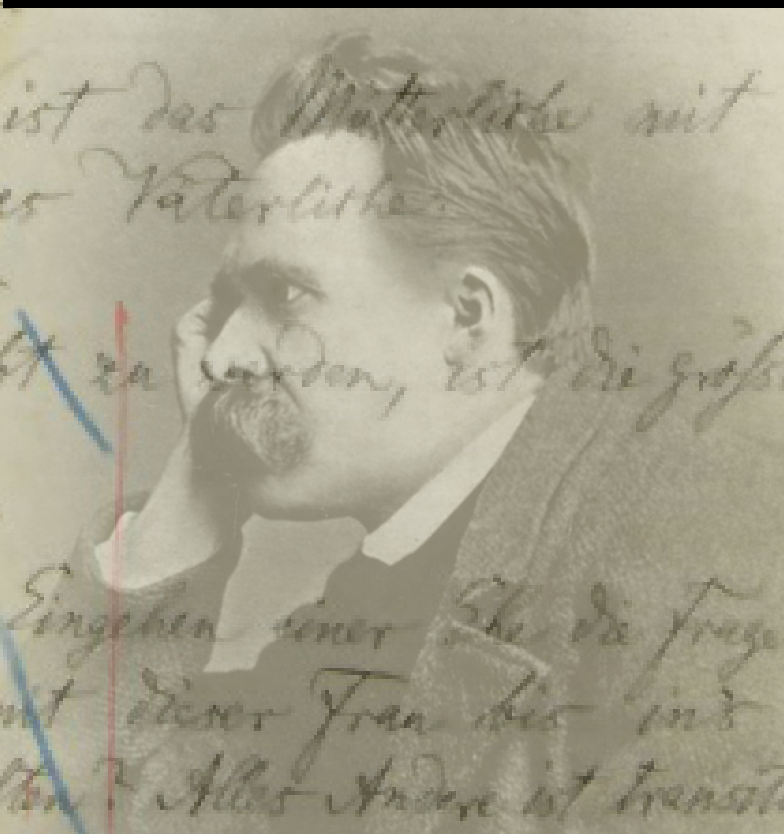 ist das Mütterliche mit
Väterliche.
zu werden, ist die
Eingehen einer Ehe die Frage
dieser Frau bis in's
Alles Andere ist